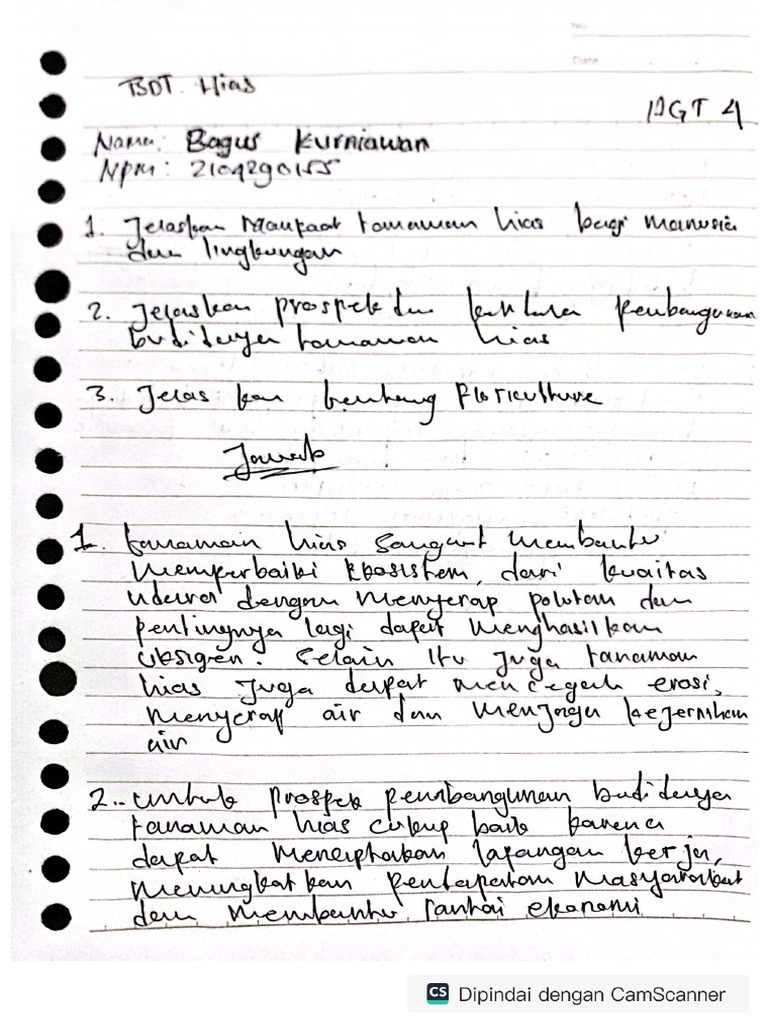 No.
Date
BDT. Hias
AGT 4
Nama: Bagus Kurniawan
Npm: 2104290155
1. Jelaskan Manfaat tanaman hias bagi manusia
dan lingkungan
2. Jelaskan prospek dan pembangunan
budidaya tanaman hias
3. Jelas kan tentang Floriculture
Jawab
1. tanaman hias sangat membantu
memperbaiki Ekosistem, dari kuaitas
udara dengan menyerap polutan dan
pentingnya lagi dapat menghasilkan
oksigen. Selain itu juga tanaman
hias juga dapat mencegah erosi,
menyerap air dan menjaga kejernihan
air
2. untuk prospek pembangunan budidaya
tanaman hias cukup baik karena
dapat menciptakan lapangan kerja,
meningkatkan pendapatan masyarakat
dan membantu rantai ekonomi
CS Dipindai dengan CamScanner